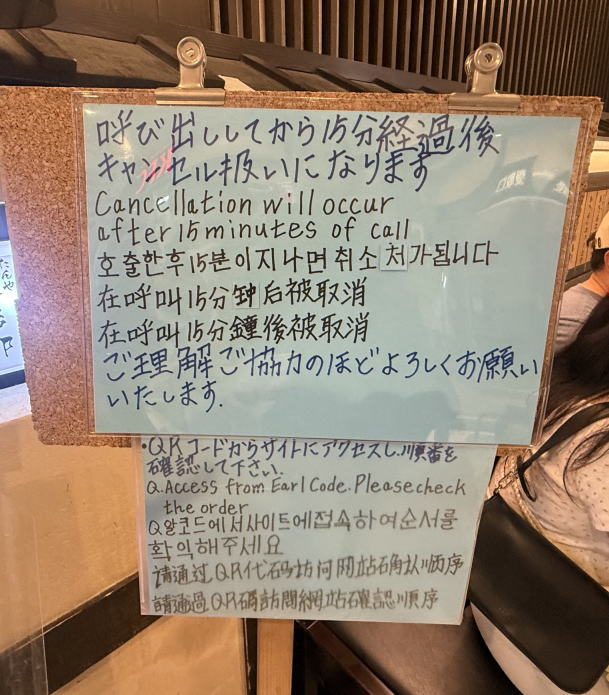 呼び出ししてから15分経過後
キャンセル扱いになります
Cancellation will occur
after 15 minutes of call
호출한후 15분이지나면 취소 처가됩니다
在呼叫15分钟后被取消
在呼叫15分鐘後被取消
ご理解ご協力のほどよろしくお願い
いたします.
・QRコードからサイトにアクセスし.順番を
確認して下さい.
Q.Access from Earl Code.Please check
the order
Q알코드에서사이트에접속하여순서를
확인해주세요
请通过QR代码访问网站确认顺序
請通過QR碼訪問網站確認順序
たんや